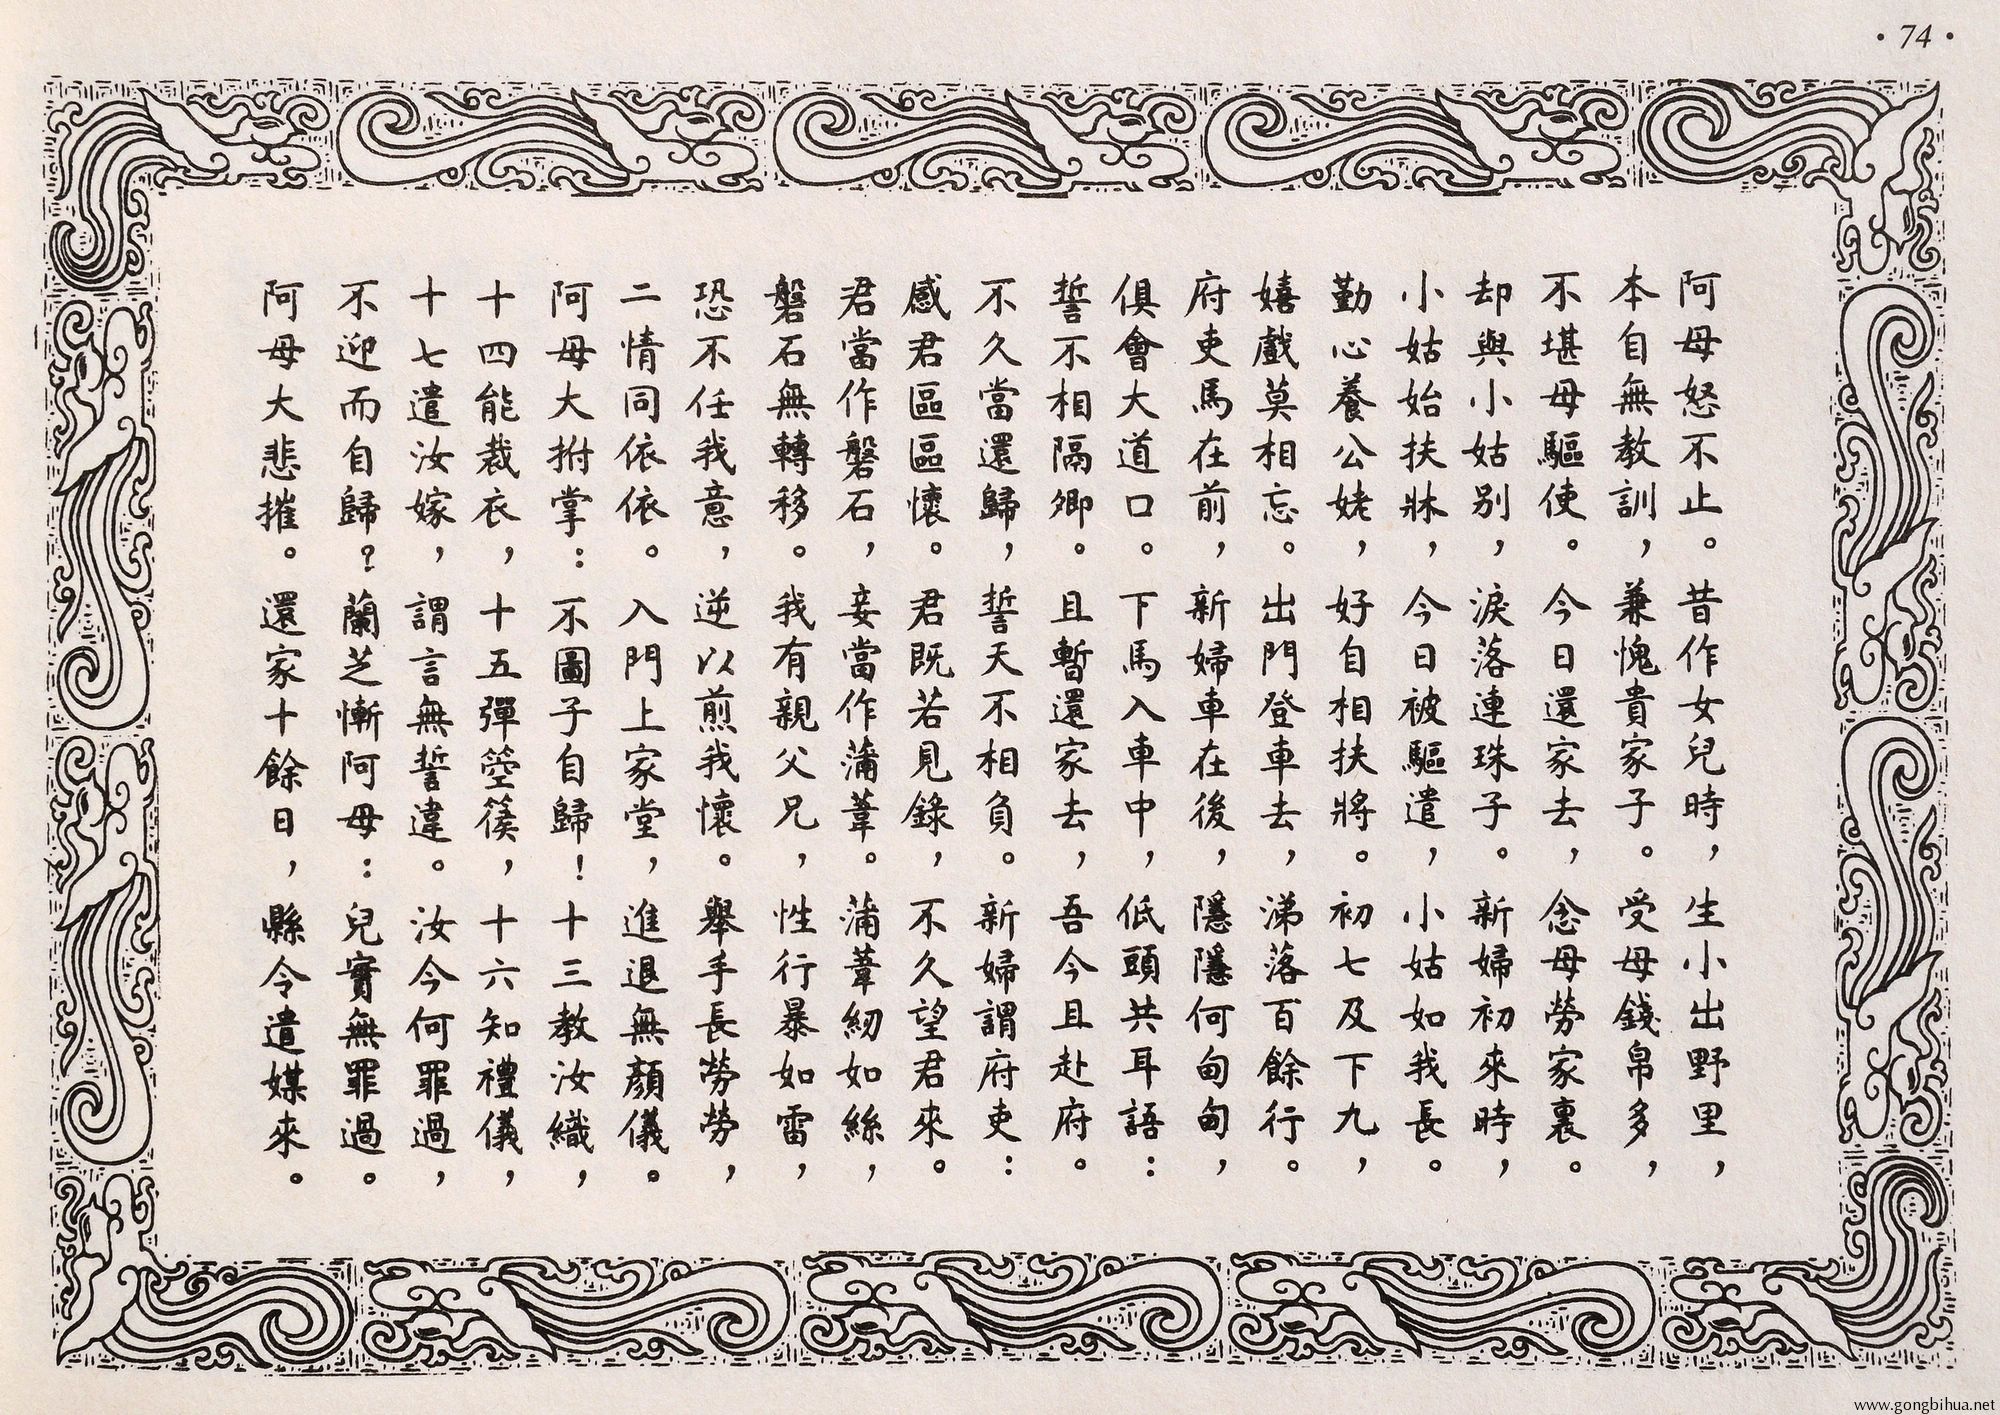 ·74·
阿母怒不止。昔作女兒時，生小出野里，
本自無教訓，兼愧貴家子。受母錢帛多，
不堪母驅使。今日還家去，念母勞家裏。
却與小姑别，淚落連珠子。新婦初來時，
小姑始扶牀，今日被驅遣，小姑如我長。
勤心養公姥，好自相扶將。初七及下九，
嬉戲莫相忘。出門登車去，涕落百餘行。
府吏馬在前，新婦車在後，隱隱何甸甸，
俱會大道口。下馬入車中，低頭共耳語：
誓不相隔卿。且暫還家去，吾今且赴府。
不久當還歸，誓天不相負。新婦謂府吏：
感君區區懷。君既若見錄，不久望君來。
君當作磐石，妾當作蒲葦。蒲葦紉如絲，
磐石無轉移。我有親父兄，性行暴如雷，
恐不任我意，逆以煎我懷。舉手長勞勞，
二情同依依。入門上家堂，進退無顏儀。
阿母大拊掌：不圖子自歸！十三教汝織，
十四能裁衣，十五彈箜篌，十六知禮儀，
十七遣汝嫁，謂言無誓違。汝今何罪過，
不迎而自歸？蘭芝慚阿母：兒實無罪過。
阿母大悲摧。還家十餘日，縣令遣媒來。
www.gongbihua.net